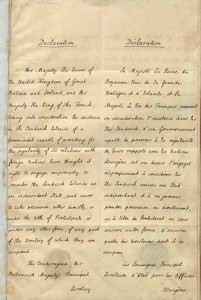 Declaration
Her Majesty the Queen of
the United Kingdom of Great
Britain and Ireland, and His
Majesty the King of the French,
taking into consideration the existence
in the Sandwich Islands of a
Government capable of providing for
the regularity of its relations with
foreign nations, have thought it
right to engage reciprocally, to
consider the Sandwich Islands as
an independent State, and never
to take possession, either directly or
under the title of Protectorate, or
under any other form, of any part
of the territory of which they are
composed.
The Undersigned, Her
Britannic Majesty's Principal
Secretary
Déclaration
Sa Majesté la Reine du
Royaume Uni de la Grande
Bretagne et d'Irlande, et Sa
Majesté le Roi des Français, prenant
en considération l'existence dans les
Iles Sandwich d'un Gouvernement
capable de pourvoir à la régularité
de leurs rapports avec les Nations
étrangères, ont cru devoir s'engager
réciproquement à considérer les
Iles Sandwich comme un Etat
indépendant, et à ne jamais
prendre possession, ni directement,
ni à titre de Protectorat, ni sous
aucune autre forme, d'aucune
partie du territoire dont il se
compose.
Le Soussigné, Principal
Secrétaire d'Etat pour les Affaires